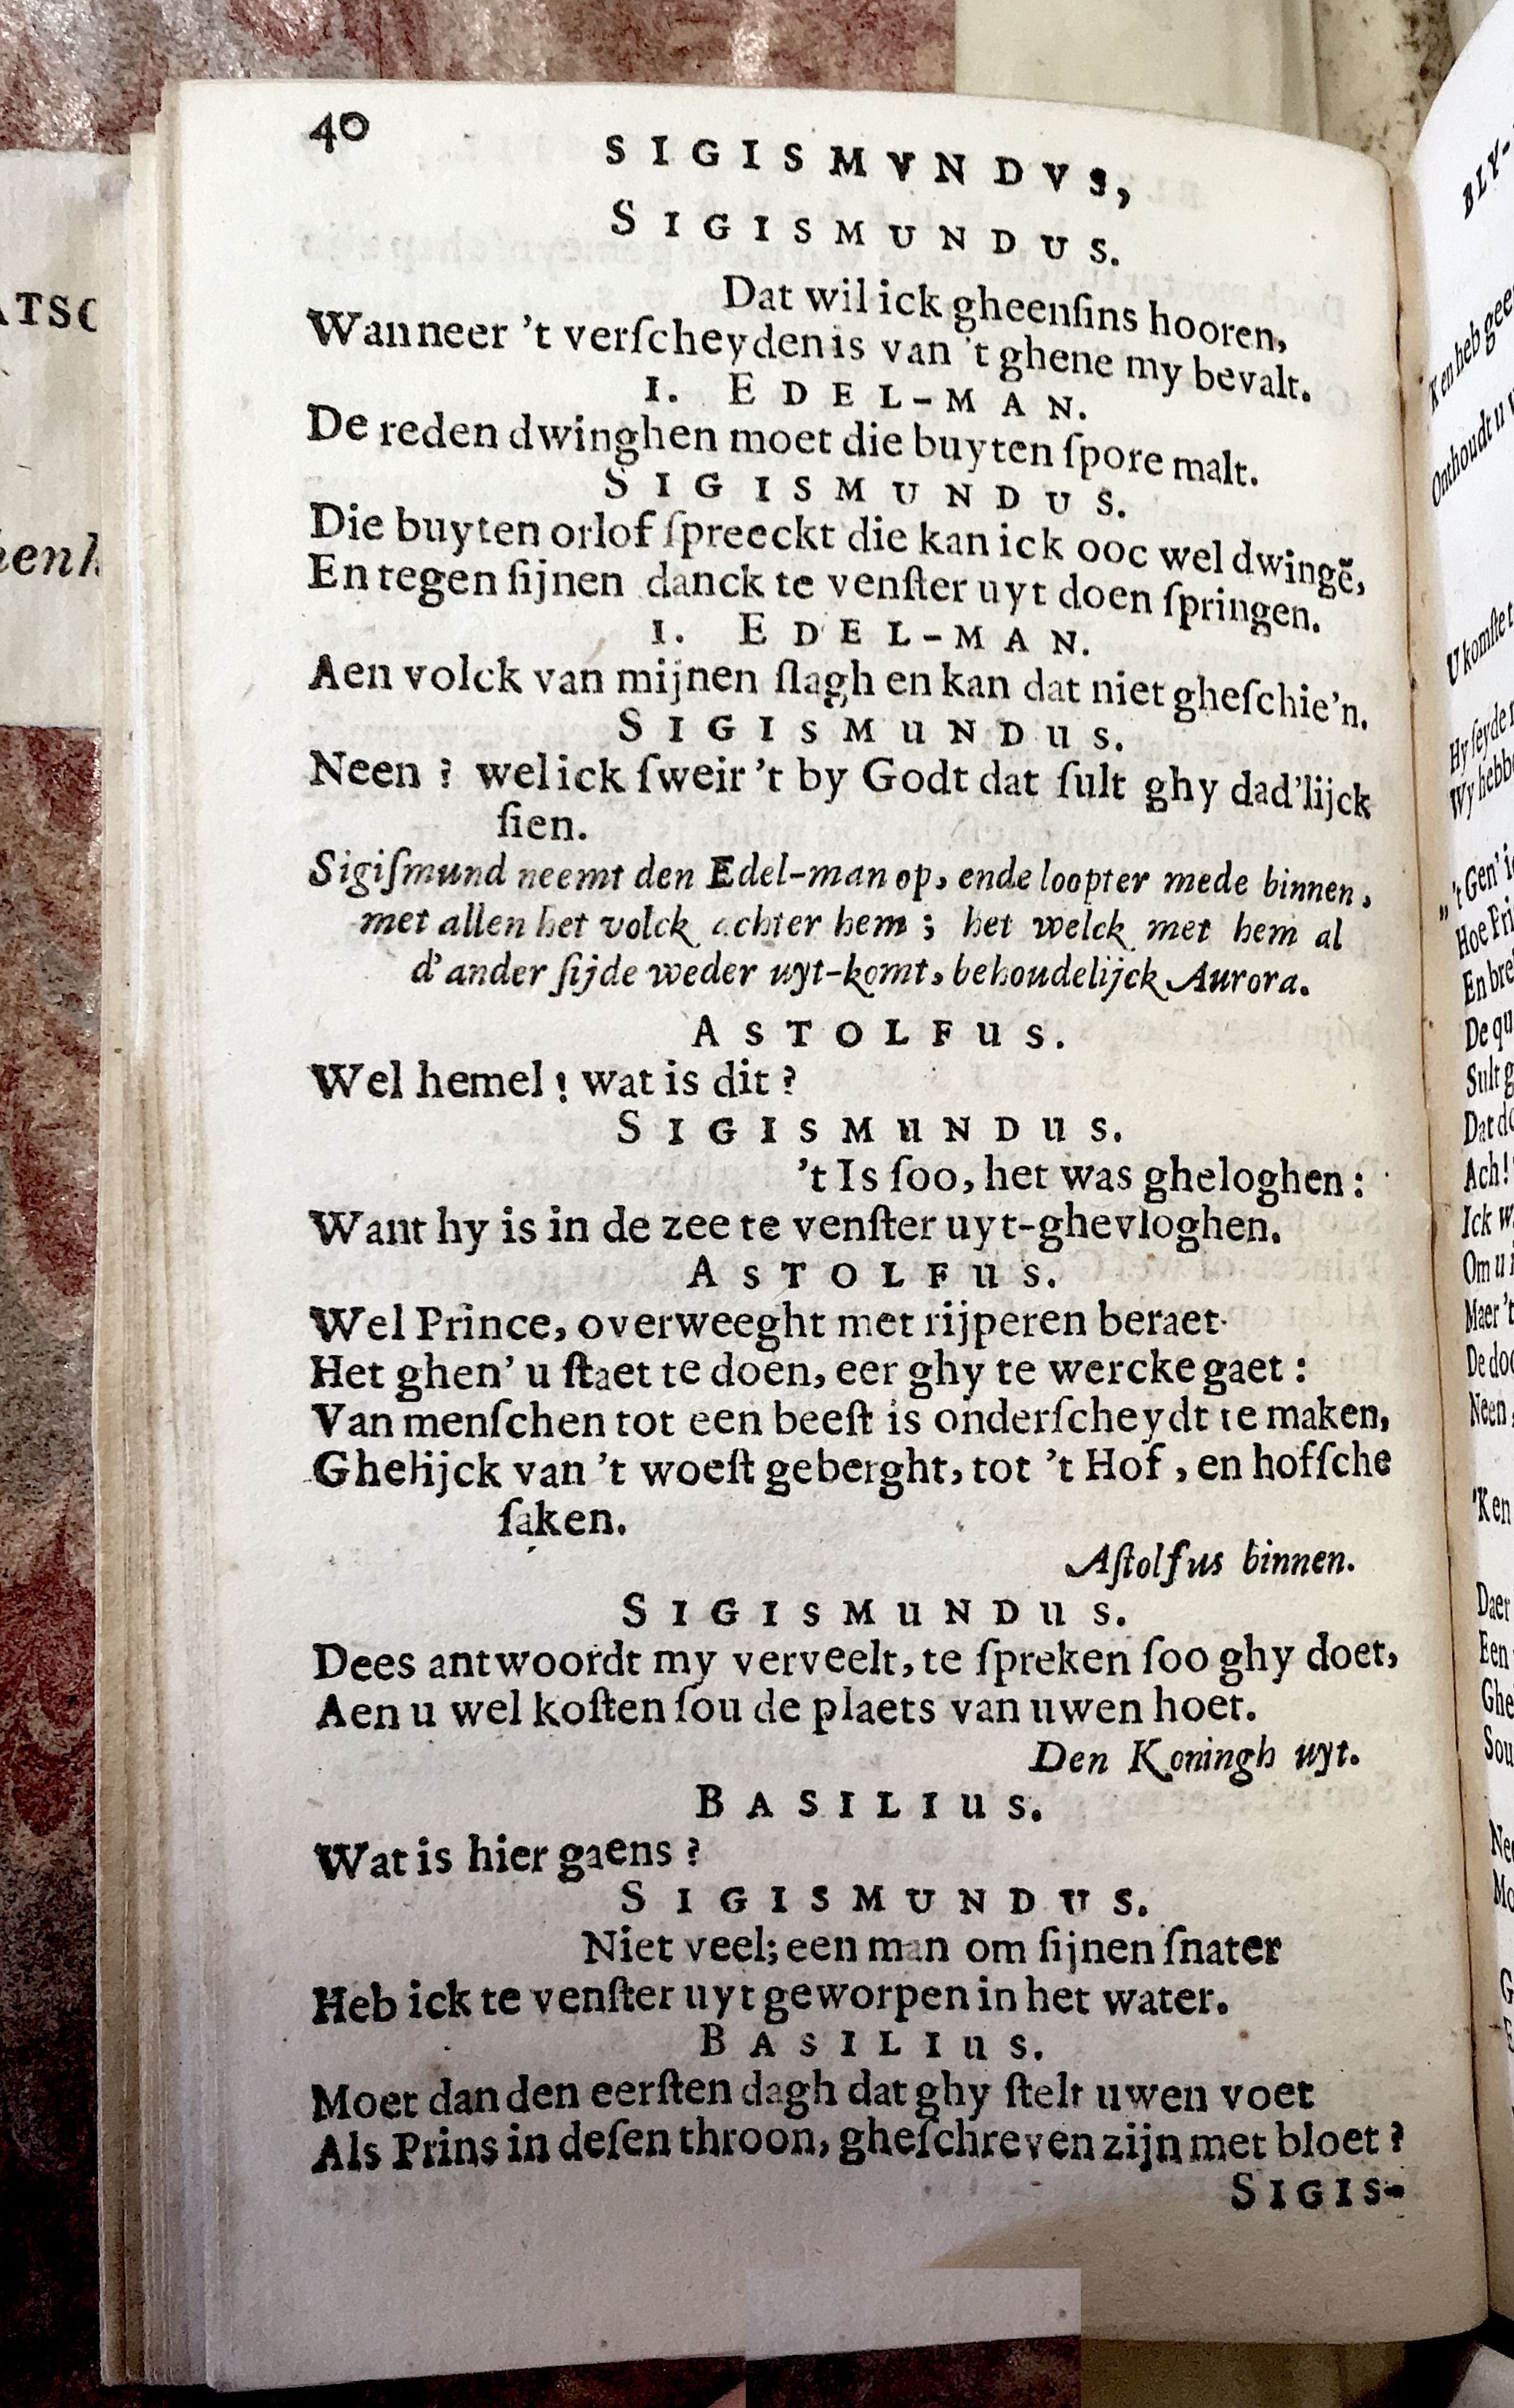 40
SIGISMVNDVS,
SIGISMUNDUS.
Dat wil ick gheenſins hooren,
Wanneer 't verſcheyden is van 't ghene my bevalt.
1. EDEL-MAN.
De reden dwinghen moet die buyten ſpore malt.
SIGISMUNDUS.
Die buyten orlof ſpreeckt die kan ick ooc wel dwingẽ,
En tegen ſijnen danck te venſter uyt doen ſpringen.
1. EDEL-MAN.
Aen volck van mijnen ſlagh en kan dat niet gheſchie'n.
SIGISMUNDUS.
Neen ? wel ick ſweir 't by Godt dat ſult ghy dad'lijck
ſien.
Sigiſmund neemt den Edel-man op, ende loopter mede binnen,
met allen het volck achter hem ; het welck met hem al
d'ander ſijde weder uyt-komt, behoudelijck Aurora.
ASTOLFUS.
Wel hemel ! wat is dit ?
SIGISMUNDUS.
't Is ſoo, het was gheloghen :
Want hy is in de zee te venſter uyt-ghevloghen.
ASTOLFUS.
Wel Prince, overweeght met rijperen beraet
Het ghen' u ſtaet te doen, eer ghy te wercke gaet :
Van menſchen tot een beeſt is onderſcheydt te maken,
Ghelijck van 't woeſt geberght, tot 't Hof , en hofſche
ſaken.
Aſtolfus binnen.
SIGISMUNDUS.
Dees antwoordt my verveelt, te ſpreken ſoo ghy doet,
Aen u wel koſten ſou de plaets van uwen hoet.
Den Koningh uyt.
BASILIUS.
Wat is hier gaens ?
SIGISMUNDUS.
Niet veel; een man om ſijnen ſnater
Heb ick te venſter uyt geworpen in het water.
BASILIUS.
Moet dan den eerſten dagh dat ghy ſtelt uwen voet
Als Prins in deſen throon, gheſchreven zijn met bloet ?
SIGIS-
ATSC
BLY-
K en heb gee
Onthoudt u
U komſte t
Hy ſeyde
Wy hebb
„ 't Gen'
Hoe Pri
En bre
De qu
Sult g
Dat do
Ach!
Ick w
Om u
Maer 't
De doo
Neen
'K en
Daer
Een
Ghe
Sou